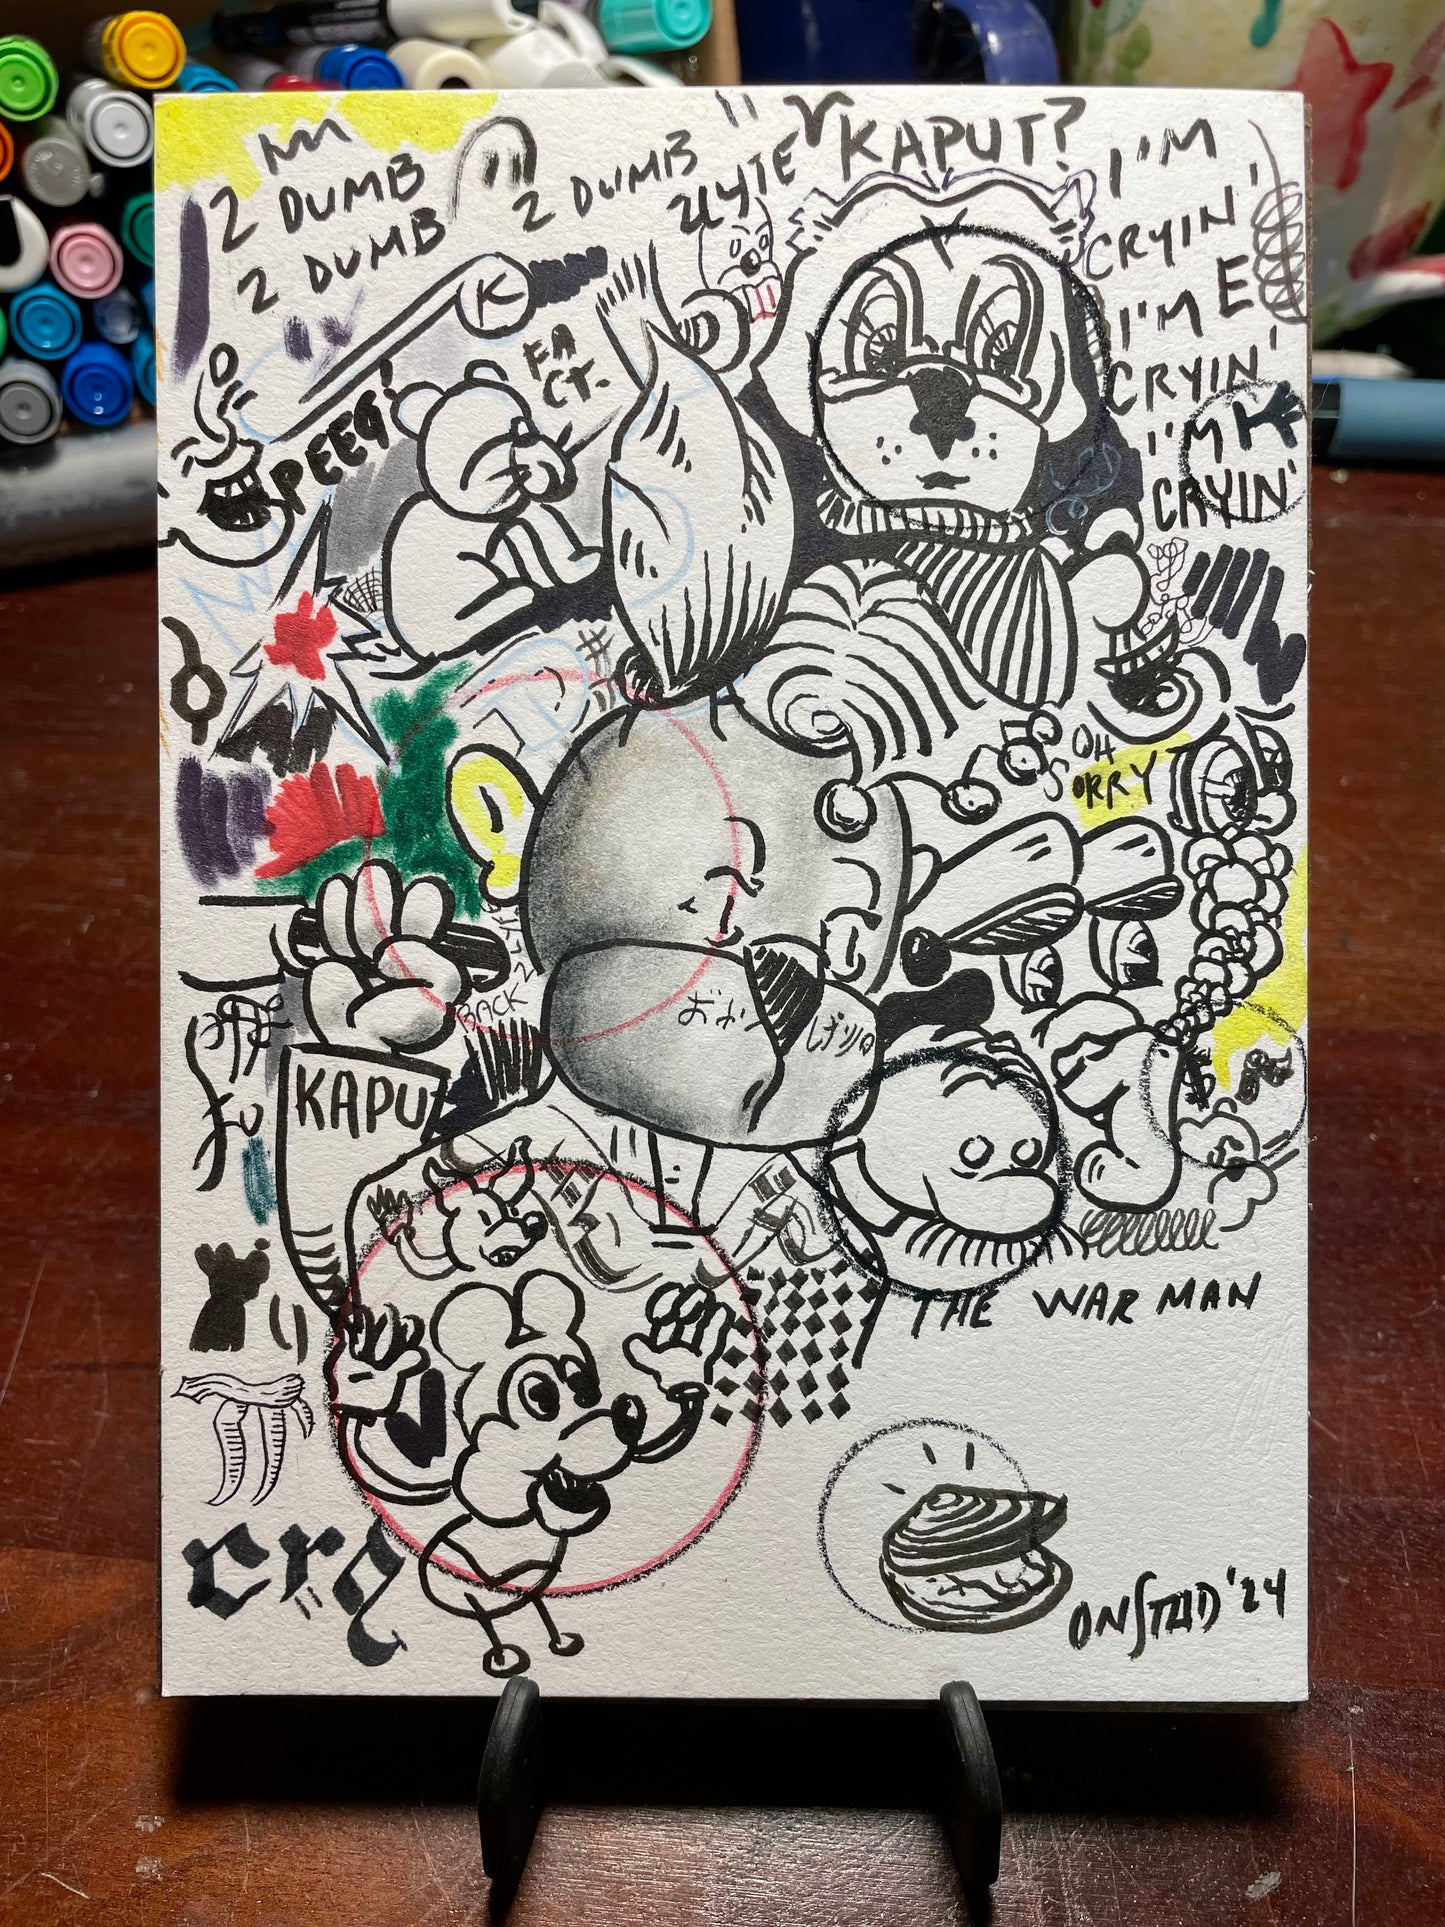 2 DUMB
2 DUMB
2 DUMB
2LYTE
KAPUT?
I'M
CRYIN'
I'M
CRYIN'
I'M
CRYIN'
E
K
FA
CT.
PEEG!
OH
SORRY
BACK 2 LYFE
おお
げり口
KAPU
THE WAR MAN
crg
ONSTAD '24